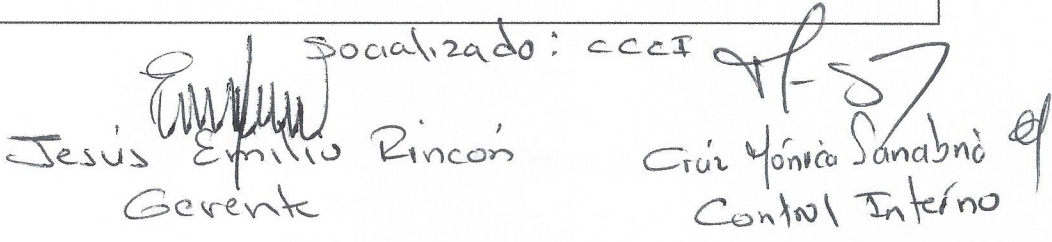 Socializado: CCCI
Jesús Emilio Rincón
Gerente
Cruz Mónica Sanabria
Control Interno